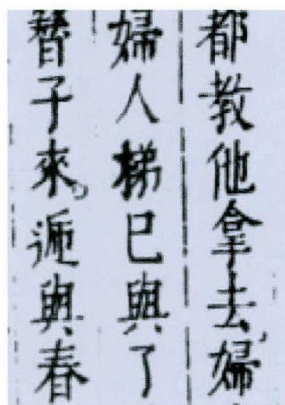 都教他拿去婦
婦人梯巳與了
替子來。遞與春